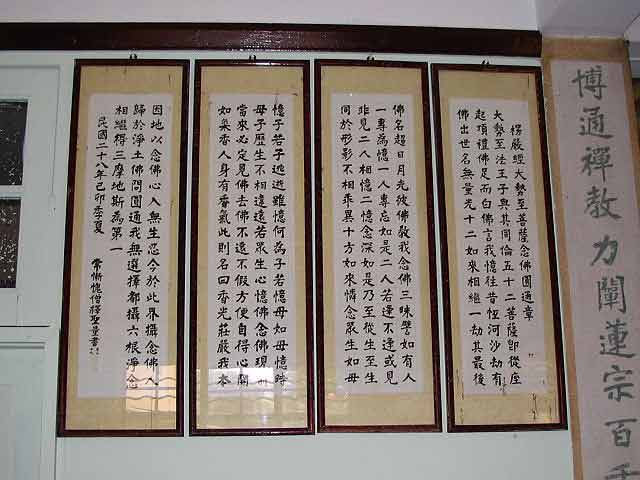 博通禪教力闡蓮宗百千
楞嚴經大勢至菩薩念佛圓通章
大勢至法王子與其同倫五十二菩薩即從座
起頂禮佛足而白佛言我憶往昔恒河沙劫有
佛出世名無量光十二如來相繼一劫其最後
佛名超日月光彼佛教我念佛三昧譬如有人
一專為憶一人專忘如是二人若逢不逢或見
非見二人相憶二憶念深如是乃至從生至生
同於形影不相乖異十方如來憐念眾生如母
憶子若子逃逝雖憶何為子若憶母如母憶時
母子歷生不相違遠若眾生心憶佛念佛現前
當來必定見佛去佛不遠不假方便自得心開
如染香人身有香氣此則名曰香光莊嚴我本
因地以念佛心入無生忍今於此界攝念佛人
歸於淨土佛問圓通我無選擇都攝六根淨念
相繼得三摩地斯為第一
民國二十八年己卯季夏
常慚愧僧釋聖量書